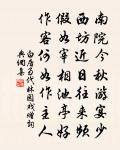 南院今秋游宴少
西坊近日往来頻
假如宰相池亭好
作客何如作主人
白居易代林园戏赠詞
典網集